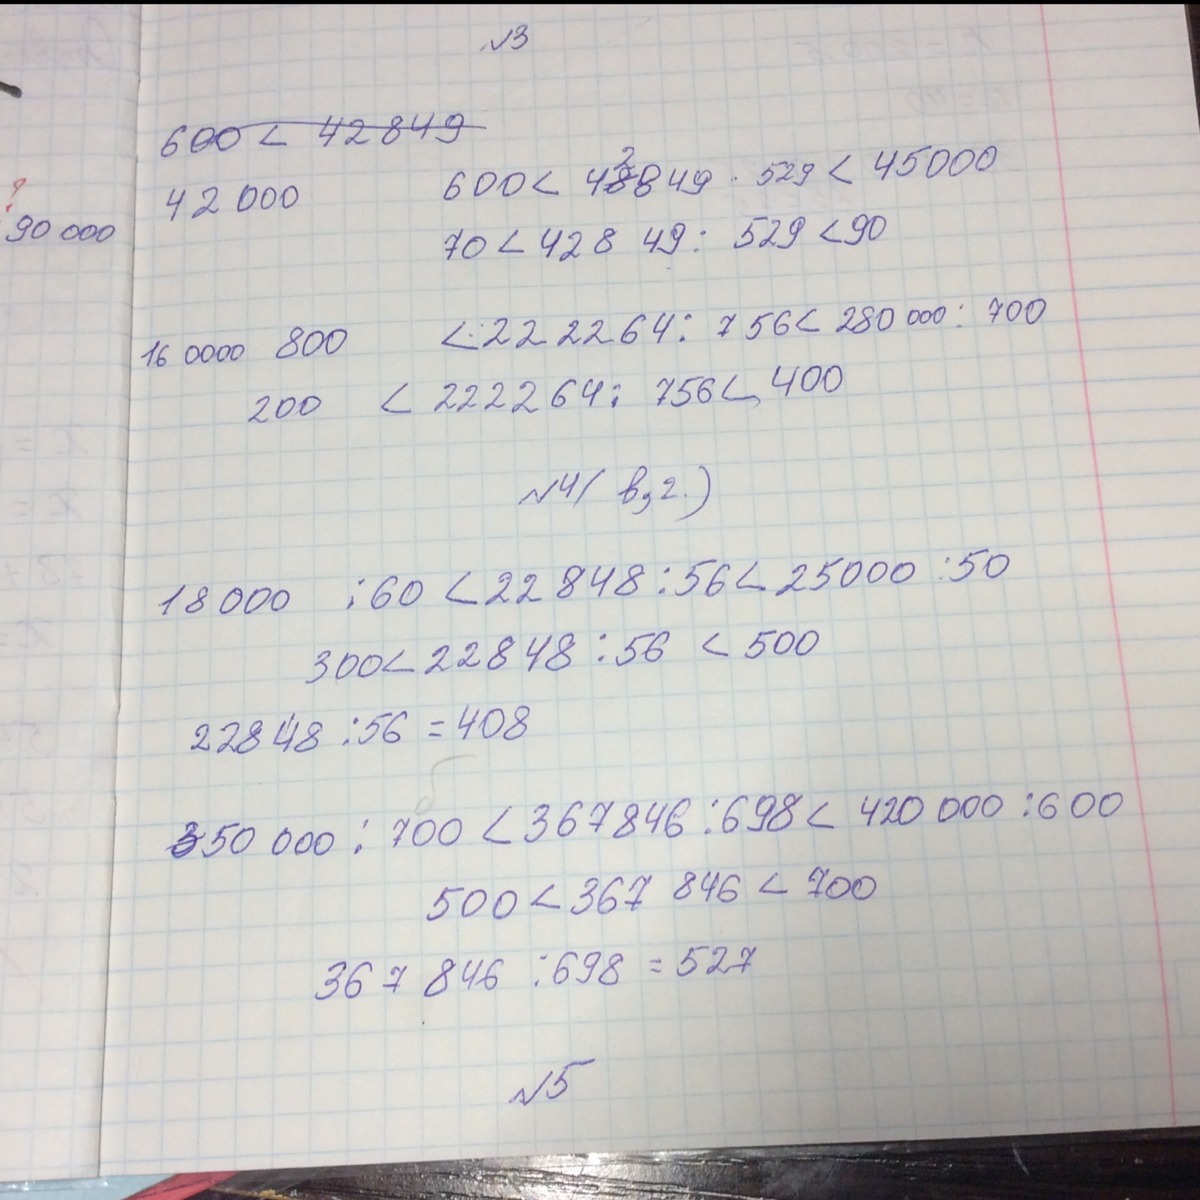 №3
600 < 42849
42 000 600 < 42849 : 529 < 45000
?
90 000
70 < 42849 : 529 < 90
160000 800 < : 222264 : 756 < 280 000 : 700
200 < 222264 : 756 < 400
№4 (в, г.)
18000 : 60 < 22848 : 56 < 25000 : 50
300 < 22848 : 56 < 500
22848 : 56 = 408
350 000 : 700 < 367846 : 698 < 420 000 : 600
500 < 367 846 < 700
367 846 : 698 = 527
№5